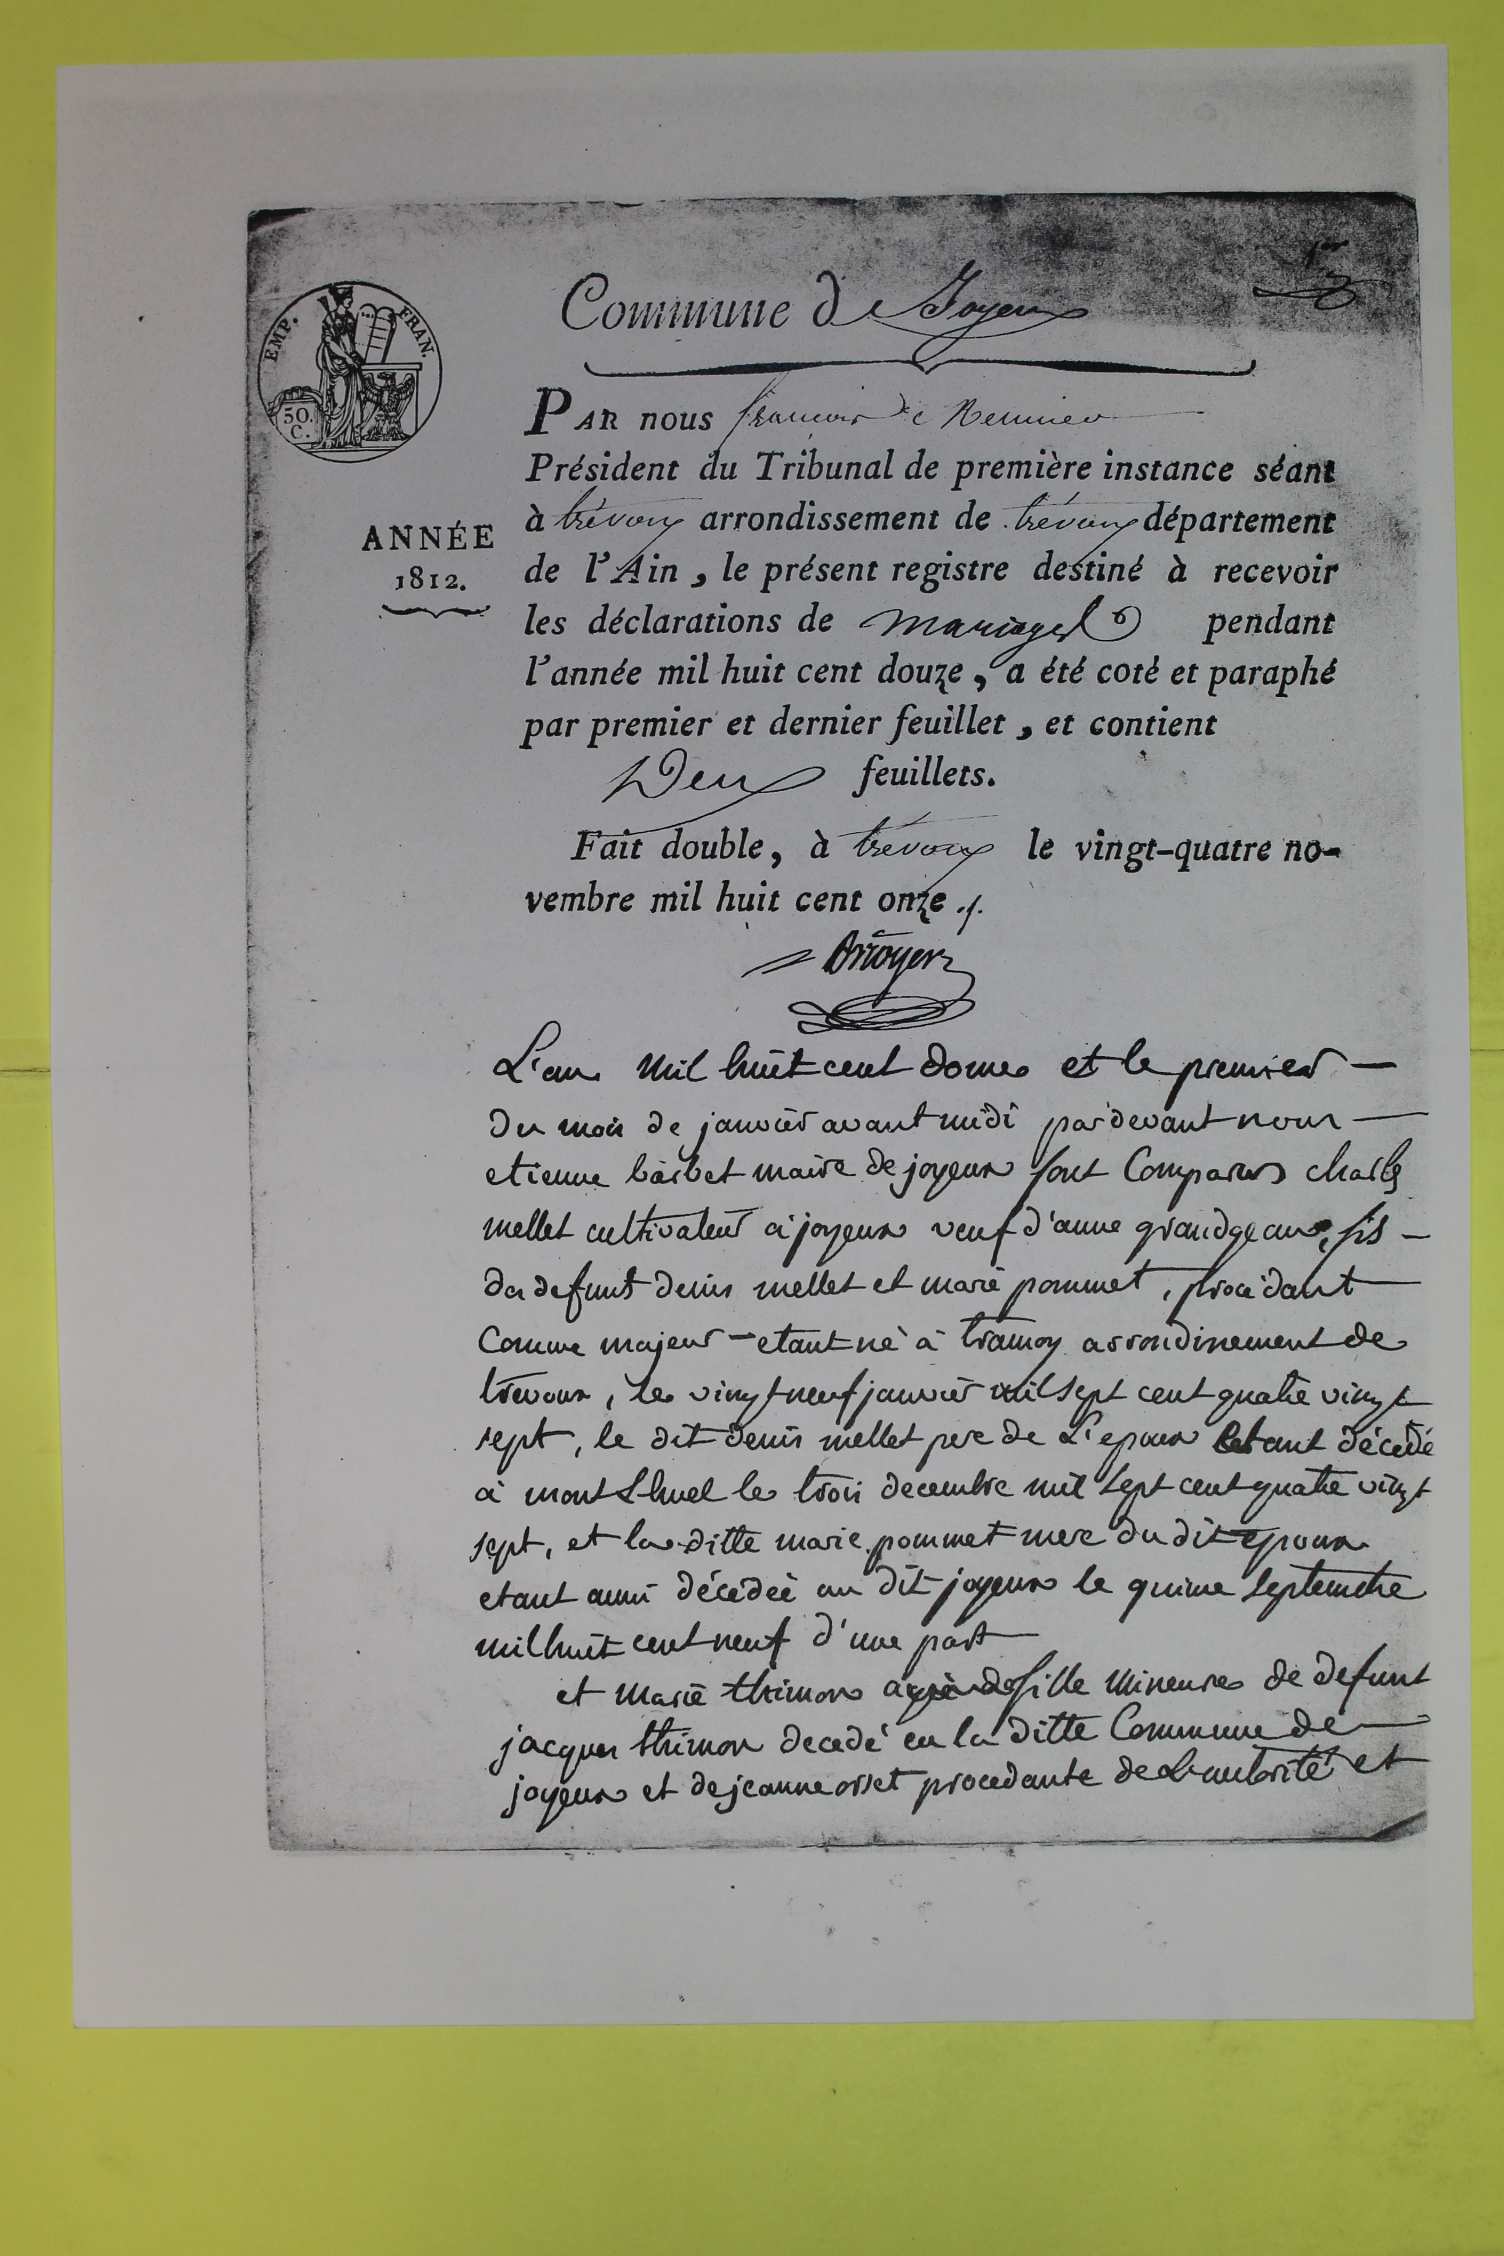 1er
EMP. FRAN.
50.
C.
Commune de Joyeux
PAR nous françois
Président du Tribunal de première instance séant
à trévoux arrondissement de trévoux département
ANNÉE
1812.
de l'Ain, le présent registre destiné à recevoir
les déclarations de mariages pendant
l'année mil huit cent douze, a été coté et paraphé
par premier et dernier feuillet, et contient
Deux feuillets.
Fait double, à trévoux le vingt-quatre no-
vembre mil huit cent onze
L'an mil huit cent douze et le premier
du mois de janvier avant midi pardevant nous
etienne barbet maire de joyeux sont Comparus charles
mellet cultivateur a joyeux veuf d'anne grandgean, fils
du defunt denis mellet et marie pommet, procedant
Comme majeur etant né à tramoy arrondissement de
trevoux, le vingt neuf janvier mil sept cent quatre vingt
sept, le dit denis mellet pere de L'epoux etant décédé
à montluel le trois decembre mil sept cent quatre vingt
sept, et la ditte marie pommet mere du dit epoux
etant aussi décédée au dit joyeux le quinze septembre
mil huit cent neuf d'une part
et marie thimon fille mineure de defunt
jacques thimon decedé en la ditte Commune de
joyeux et de jeanne orset procedante de L'autorité et